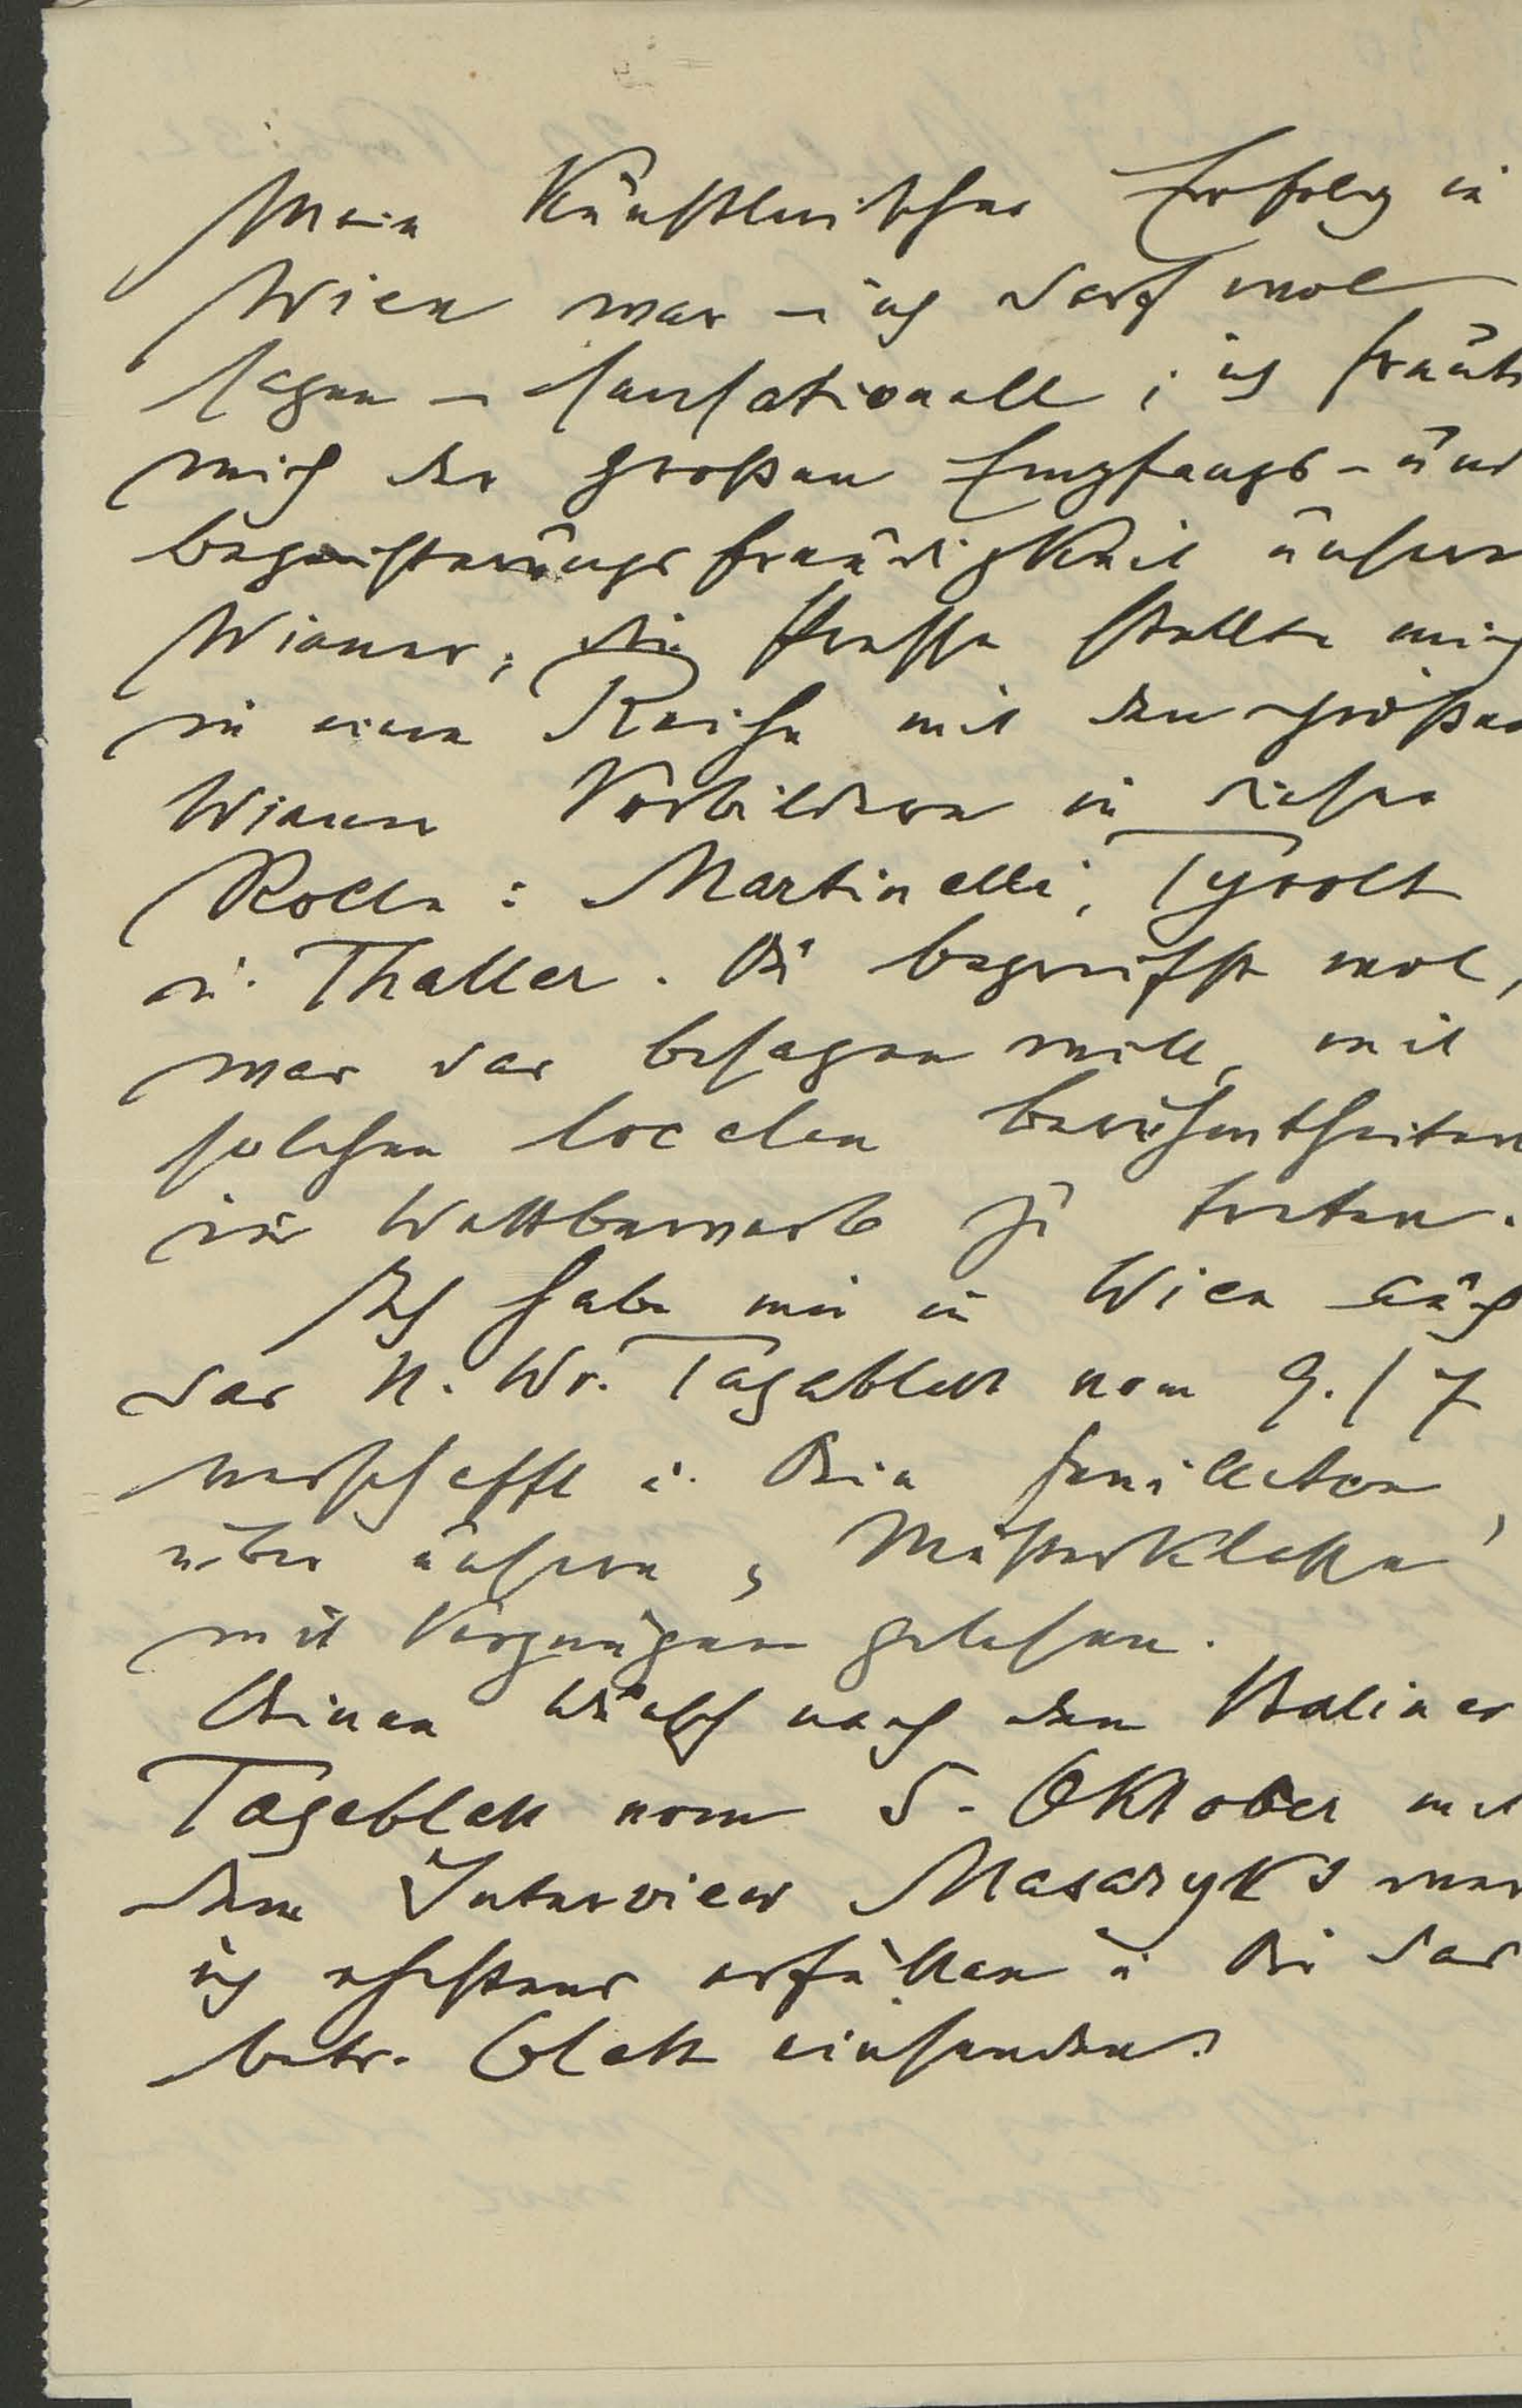 Mein Künstlerischer Erfolg in
Wien war – ich darf wol
sagen – sensationell; ich freute
mich der großen Empfangs- und
begeisterungsfreudigkeit unserer
Wiener, die Presse stellte mich
in eine Reihe mit den großen
Wiener Vorbildern in dieser
Rolle: Martinelli, Tyrolt
u. Thaller. Du begreifst wol,
was das besagen will, mit
solchen localen Berühmtheiten
in Wettbewerb zu treten.
Ich habe mir in Wien auch
das N. Wr. Tagblatt vom 9./7
verschafft u. Dein Feuilleton
über unsern „Mutterklette“
mit Vergnügen gelesen.
Deinen Wunsch nach dem Berliner
Tageblatt vom 5. Oktober mit
dem Interview Masaryks werde
ich ehestens erfüllen u. Dir das
betr. Blatt einsenden.